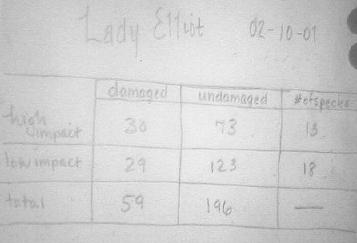 Lady Elliot 02-10-01
damaged undamaged # of species
high impact 30 73 13
low impact 29 123 18
total 59 196 —